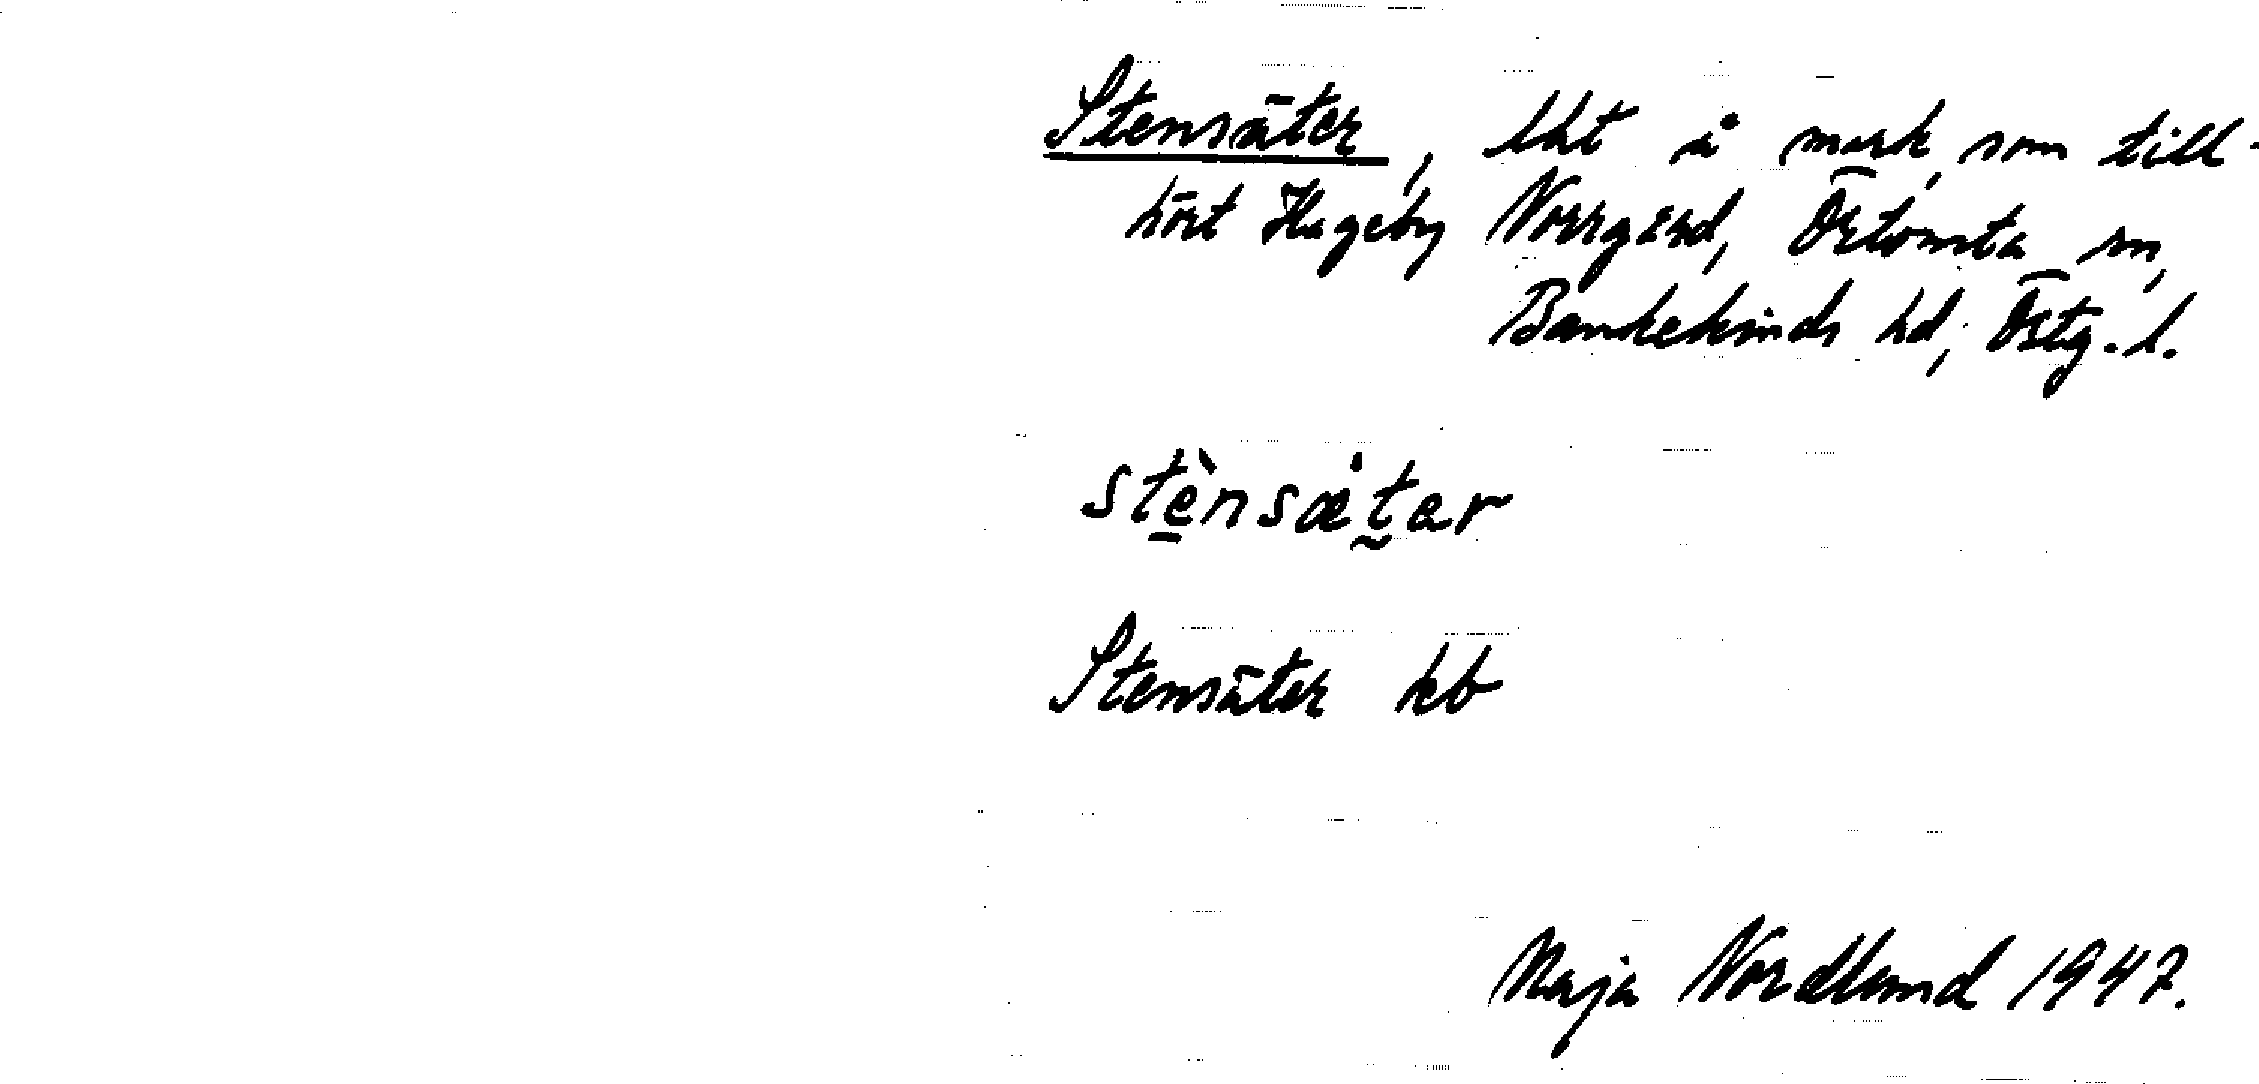 Stensäter, lht å mark, som till-
hört Hageby Norrgård, Örtomta sn,
Bankekinds hd, Östg. l.
stè̠nsæ̇t̰ar
Stensäter kb
Maja Nordlund 1947.